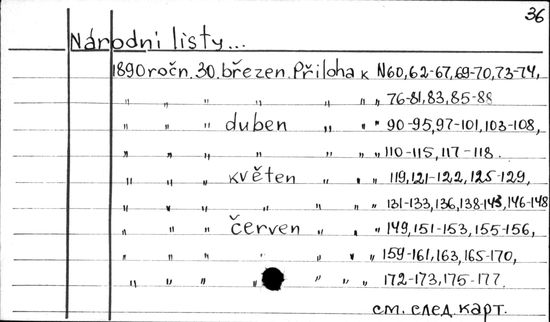 36
Národni listy...
1890 ročn. 30. březen. Příloha к N60,62-67,69-70,73-74,
" " " " " " " 76-81,83,85-88
" " " duben " " " 90-95,97-101,103-108,
" " " " " " " 110-115,117-118.
" " " květen " " " 119,121-122,125-129,
" " " " " " " 131-133,136,138-143,146-148
" " " červen " " " 149,151-153,155-156,
" " " " " " " 159-161,163,165-170,
" " " " " " " 172-173,175-177.
см. след. карт.